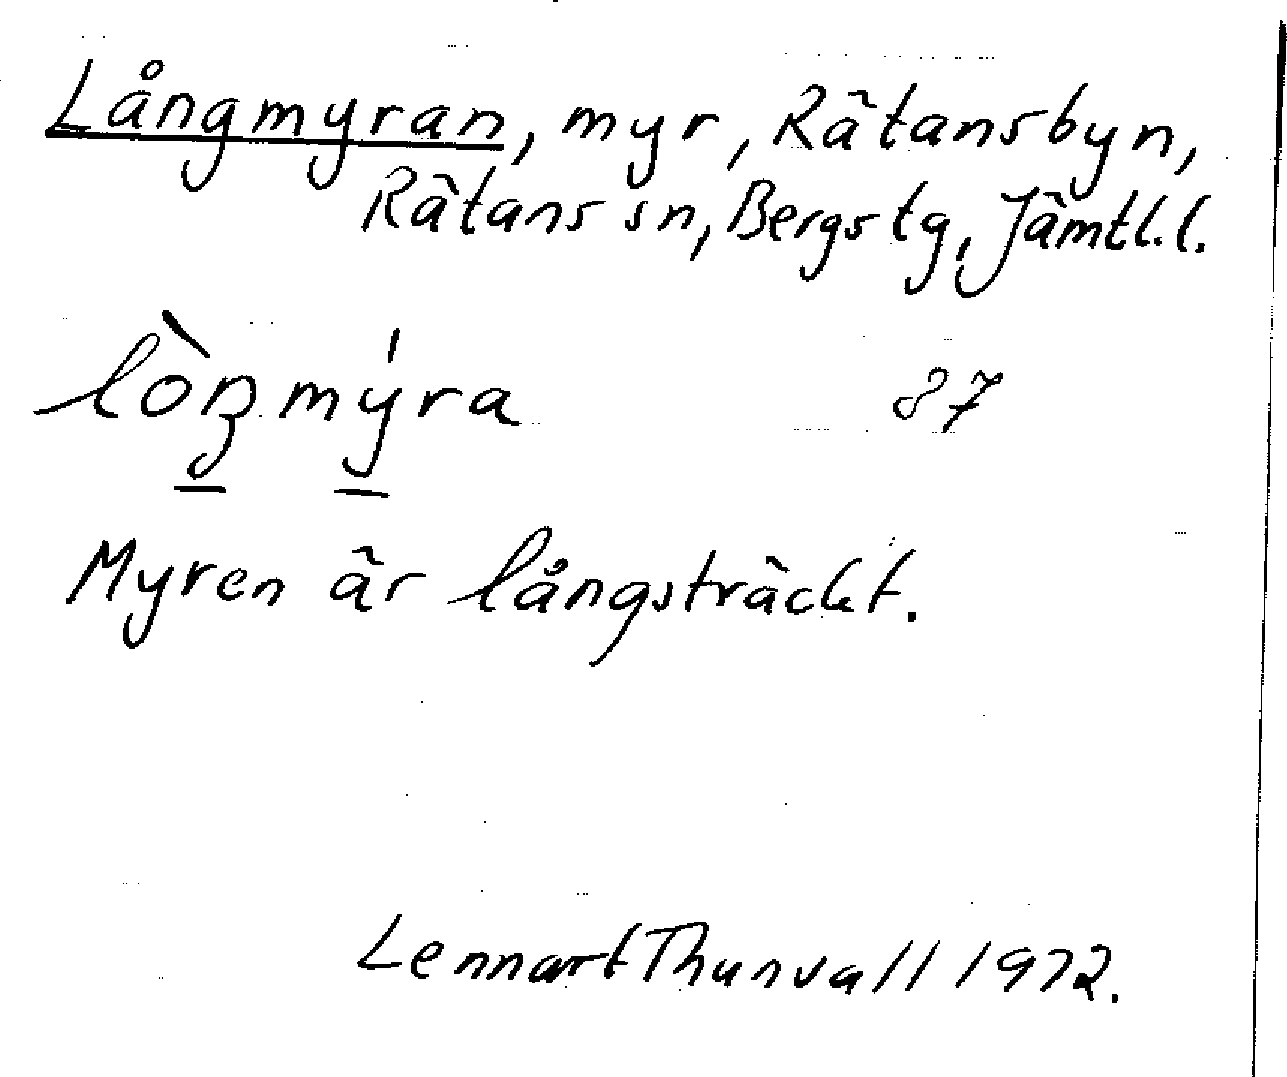 Långmyran, myr, Rätansbyn,
Rätans sn, Bergs tg, Jämtl.l.
lòŋmýra 87
Myren är långsträckt.
Lennart Thunvall 1972.